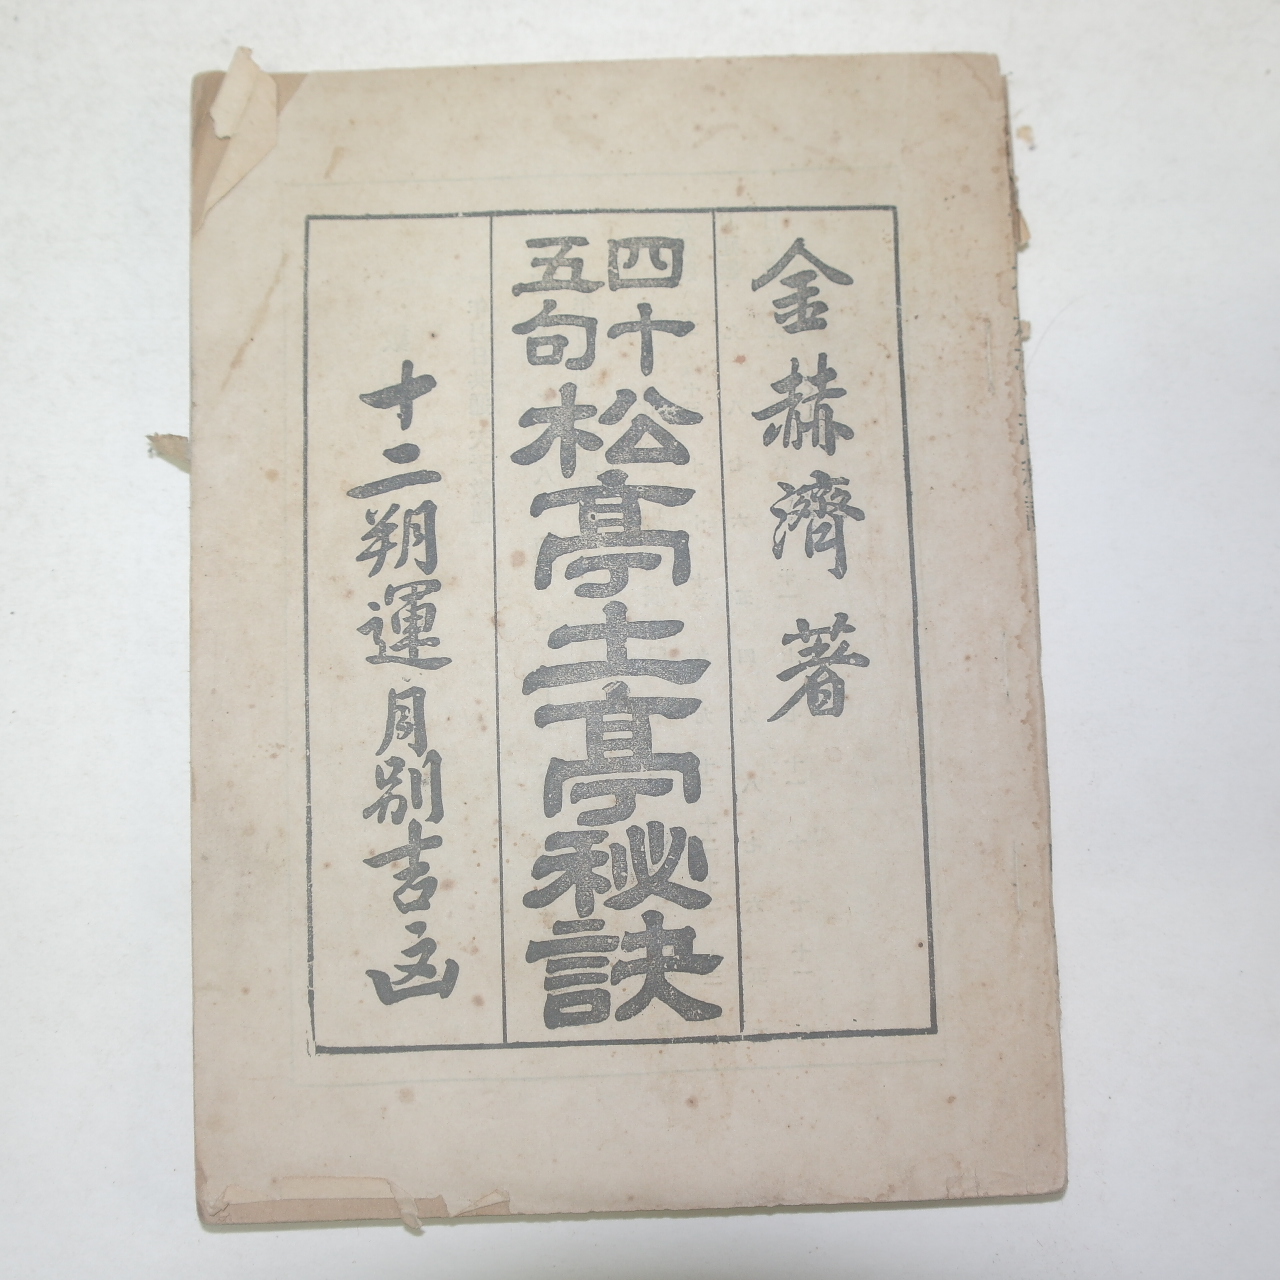 金赫濟 著
四十五句 松亭土亭秘訣
十二朔運 月別吉凶